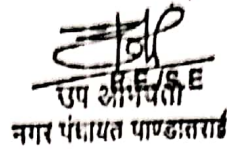 R.E/S.E
उप अभियंता
नगर पंचायत पाण्डातराई